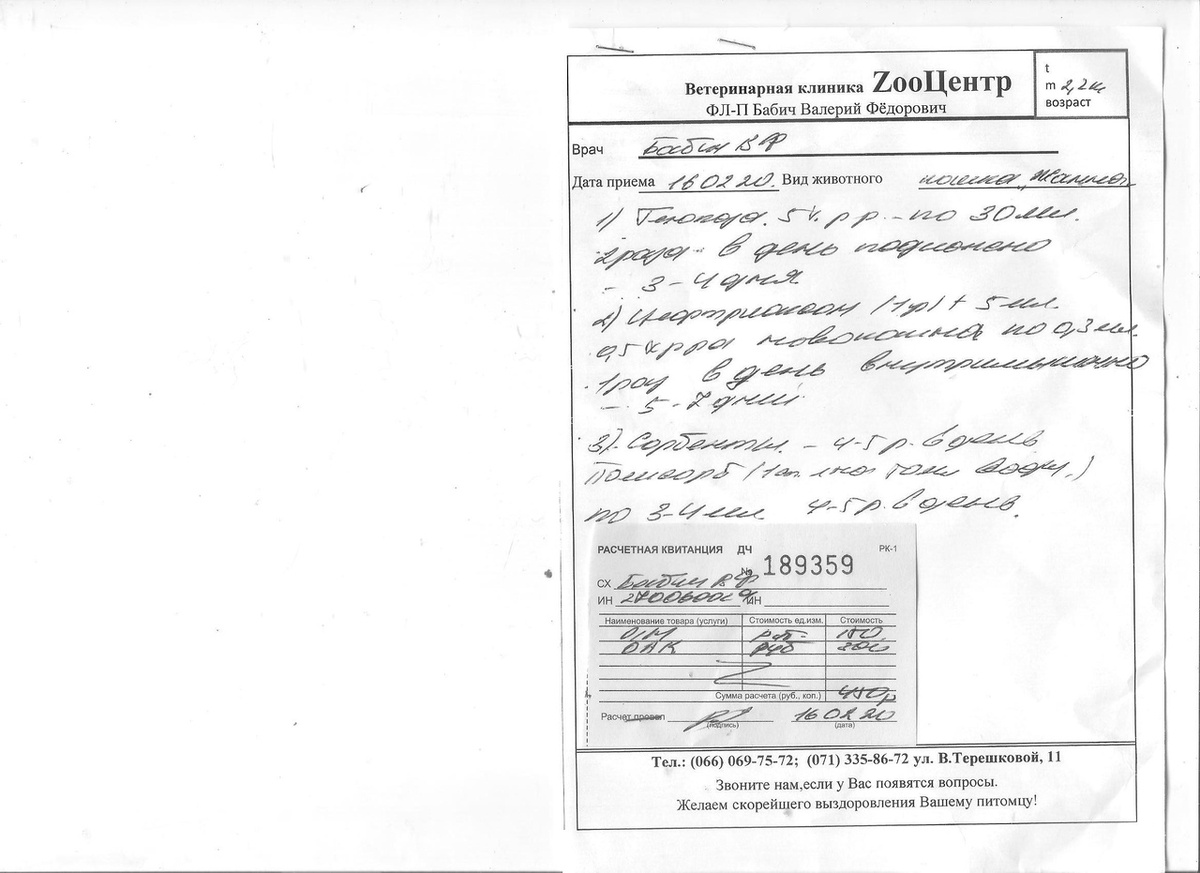 Ветеринарная клиника ZooЦентр
ФЛ-П Бабич Валерий Фёдорович
t
m 2,2кг
возраст
Врач Бабич В Ф
Дата приема 16 02 20. Вид животного кошка „Жанна"
1) Глюкоза 5% р р. – по 30 мл.
2 раза в день подкожно
– 3 – 4 дня
2) Цефтриаксон (1гр) + 5 мл.
0,5% р ра новокаина по 0,3 мл.
1 раз в день внутримышечно
– 5 – 7 дней
3) Сорбенты – 4-5 р. в день
Полисорб (1 воды.)
по 3-4 мл 4-5 р. в день.
РАСЧЕТНАЯ КВИТАНЦИЯ ДЧ РК-1
№ 189359
СХ Бабич В Ф
ИН ИН
Наименование товара (услуги) Стоимость ед.изм. Стоимость
150
ОАК руб 300
Сумма расчета (руб., коп.) 450р
Расчет провел 16 02 20
(подпись) (дата)
Тел.: (066) 069-75-72; (071) 335-86-72 ул. В.Терешковой, 11
Звоните нам,если у Вас появятся вопросы.
Желаем скорейшего выздоровления Вашему питомцу!